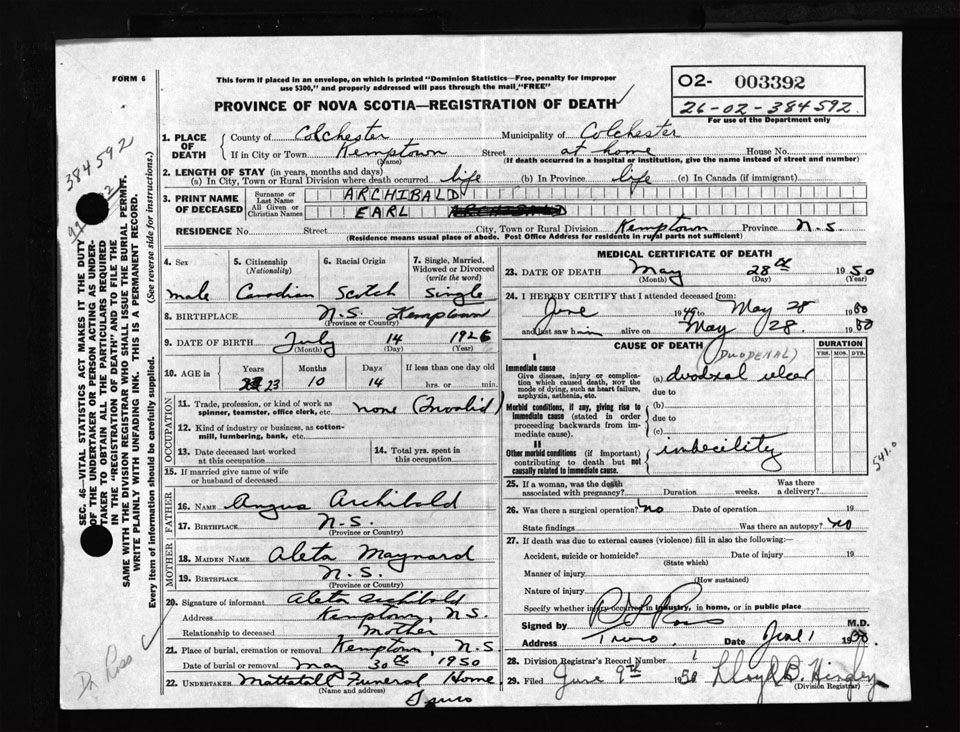 FORM 6
This form if placed in an envelope, on which is printed "Dominion Statistics—Free, penalty for improper
use $300," and properly addressed will pass through the mail "FREE"
PROVINCE OF NOVA SCOTIA—REGISTRATION OF DEATH
O2- 003392
26-02-384592
For use of the Department only
384592
SEC. 46—VITAL STATISTICS ACT MAKES IT THE DUTY
OF THE UNDERTAKER OR PERSON ACTING AS UNDER-
TAKER TO OBTAIN ALL THE PARTICULARS REQUIRED
IN THE "REGISTRATION OF DEATH" AND TO FILE THE
SAME WITH THE DIVISION REGISTRAR WHO SHALL ISSUE THE BURIAL PERMIT.
WRITE PLAINLY WITH UNFADING INK. THIS IS A PERMANENT RECORD.
Every item of information should be carefully supplied. (See reverse side for instructions.)
Dr Ross
1. PLACE OF DEATH County of Colchester Municipality of Colchester
If in City or Town Kemptown Street at home House No.
(Name) (If death occurred in a hospital or institution, give the name instead of street and number)
2. LENGTH OF STAY (in years, months and days)
(a) In City, Town or Rural Division where death occurred life (b) In Province life (c) In Canada (if immigrant)
3. PRINT NAME OF DECEASED Surname or Last Name ARCHIBALD
All Given or Christian Names EARL
RESIDENCE No. Street City, Town or Rural Division Kemptown Province N.S.
(Residence means usual place of abode. Post Office Address for residents in rural parts not sufficient)
4. Sex 5. Citizenship (Nationality) 6. Racial Origin 7. Single, Married, Widowed or Divorced (write the word)
male Canadian Scotch Single
8. BIRTHPLACE N.S. Kemptown
(Province or Country)
9. DATE OF BIRTH July 14 1926
(Month) (Day) (Year)
10. AGE in Years Months Days If less than one day old
23 10 14 hrs. or min.
OCCUPATION
11. Trade, profession, or kind of work as spinner, teamster, office clerk, etc. none (Invalid)
12. Kind of industry or business, as cotton-mill, lumbering, bank, etc.
13. Date deceased last worked at this occupation 14. Total yrs. spent in this occupation
15. If married give name of wife or husband of deceased
FATHER
16. NAME Angus Archibald
17. BIRTHPLACE N.S.
(Province or Country)
MOTHER
18. MAIDEN NAME Aleta Maynard
19. BIRTHPLACE N.S.
(Province or Country)
20. Signature of informant Aleta Archibald
Address Kemptown, N.S.
Relationship to deceased Mother
21. Place of burial, cremation or removal Kemptown, N.S.
Date of burial or removal May 30th 1950
22. UNDERTAKER Mattatall Funeral Home
(Name and address) Truro
MEDICAL CERTIFICATE OF DEATH
23. DATE OF DEATH May 28th 1950
(Month) (Day) (Year)
24. I HEREBY CERTIFY that I attended deceased from:
June 1949 to May 28 1950
and last saw him alive on May 28. 1950
CAUSE OF DEATH (DUODENAL) DURATION
YRS. MOS. DYS.
I
Immediate cause (a) duodenal ulcer
Give disease, injury or complication which caused death, NOT the mode of dying, such as heart failure, asphyxia, asthenia, etc. due to
Morbid conditions, if any, giving rise to immediate cause (stated in order proceeding backwards from immediate cause). (b)
due to
(c)
II
Other morbid conditions (if important) contributing to death but not causally related to immediate cause. imbecility
541.0
25. If a woman, was the death associated with pregnancy? Duration weeks. Was there a delivery?
26. Was there a surgical operation? No Date of operation. 19
State findings Was there an autopsy? No
27. If death was due to external causes (violence) fill in also the following:—
Accident, suicide or homicide? Date of injury 19
(State which)
Manner of injury
(How sustained)
Nature of injury
Specify whether injury occurred in industry, in home, or in public place
Signed by Ross M.D.
Address Truro Date June 1 1950
28. Division Registrar's Record Number 1
29. Filed June 9th 1950 Lloyd B. Hingley
(Division Registrar)